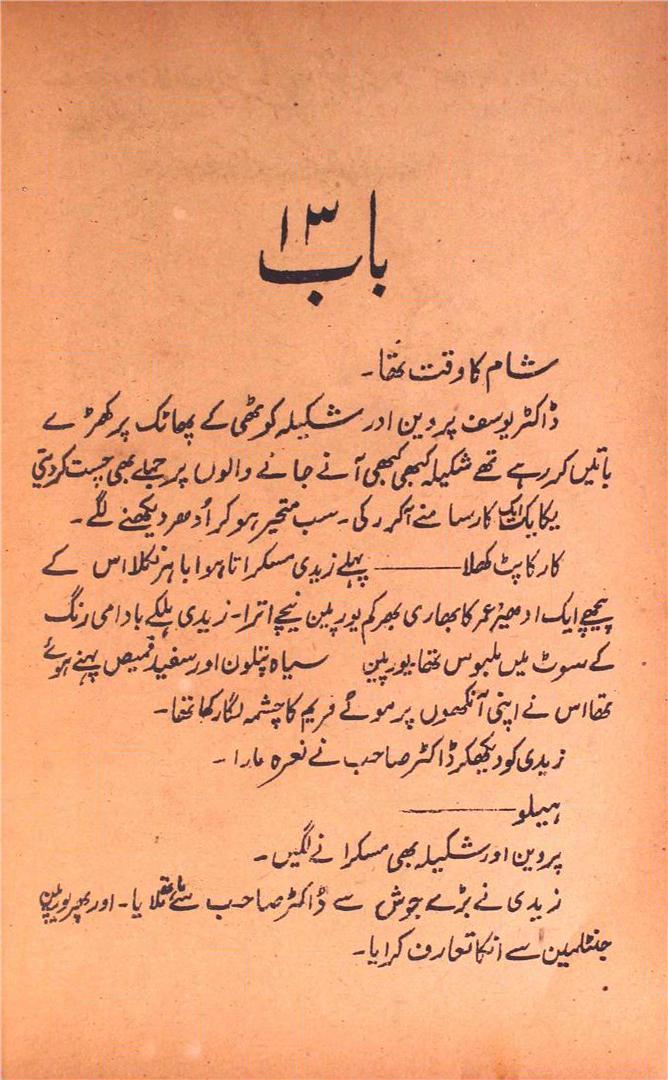 باب ۱۳
شام کا وقت تھا۔
ڈاکٹر یوسف پروین اور شکیلہ کوٹھی کے پھاٹک پر کھڑے
باتیں کر رہے تھے شکیلہ کبھی کبھی آنے جانے والوں پر جملے بھی چست کر دیتی
یکایک ایک کار سامنے آکر رکی۔ سب متحیر ہو کر اُدھر دیکھنے لگے۔
کار کا پٹ کھلا ——— پہلے زیدی مسکراتا ہوا باہر نکلا اس کے
پیچھے ایک ادھیڑ عمر کا بھاری بھرکم یورپین نیچے اترا۔ زیدی ہلکے بادامی رنگ
کے سوٹ میں ملبوس تھا۔ یورپین سیاہ پتلون اور سفید قمیص پہنے ہوئے
تھا اس نے اپنی آنکھوں پر موٹے فریم کا چشمہ لگا رکھا تھا۔
زیدی کو دیکھکر ڈاکٹر صاحب نے نعرہ مارا۔
ہیلو ———
پروین اور شکیلہ بھی مسکرانے لگیں۔
زیدی نے بڑے جوش سے ڈاکٹر صاحب سے ہاتھ ملایا۔ اور پھر یورپین
جنٹلمین سے انکا تعارف کرایا۔